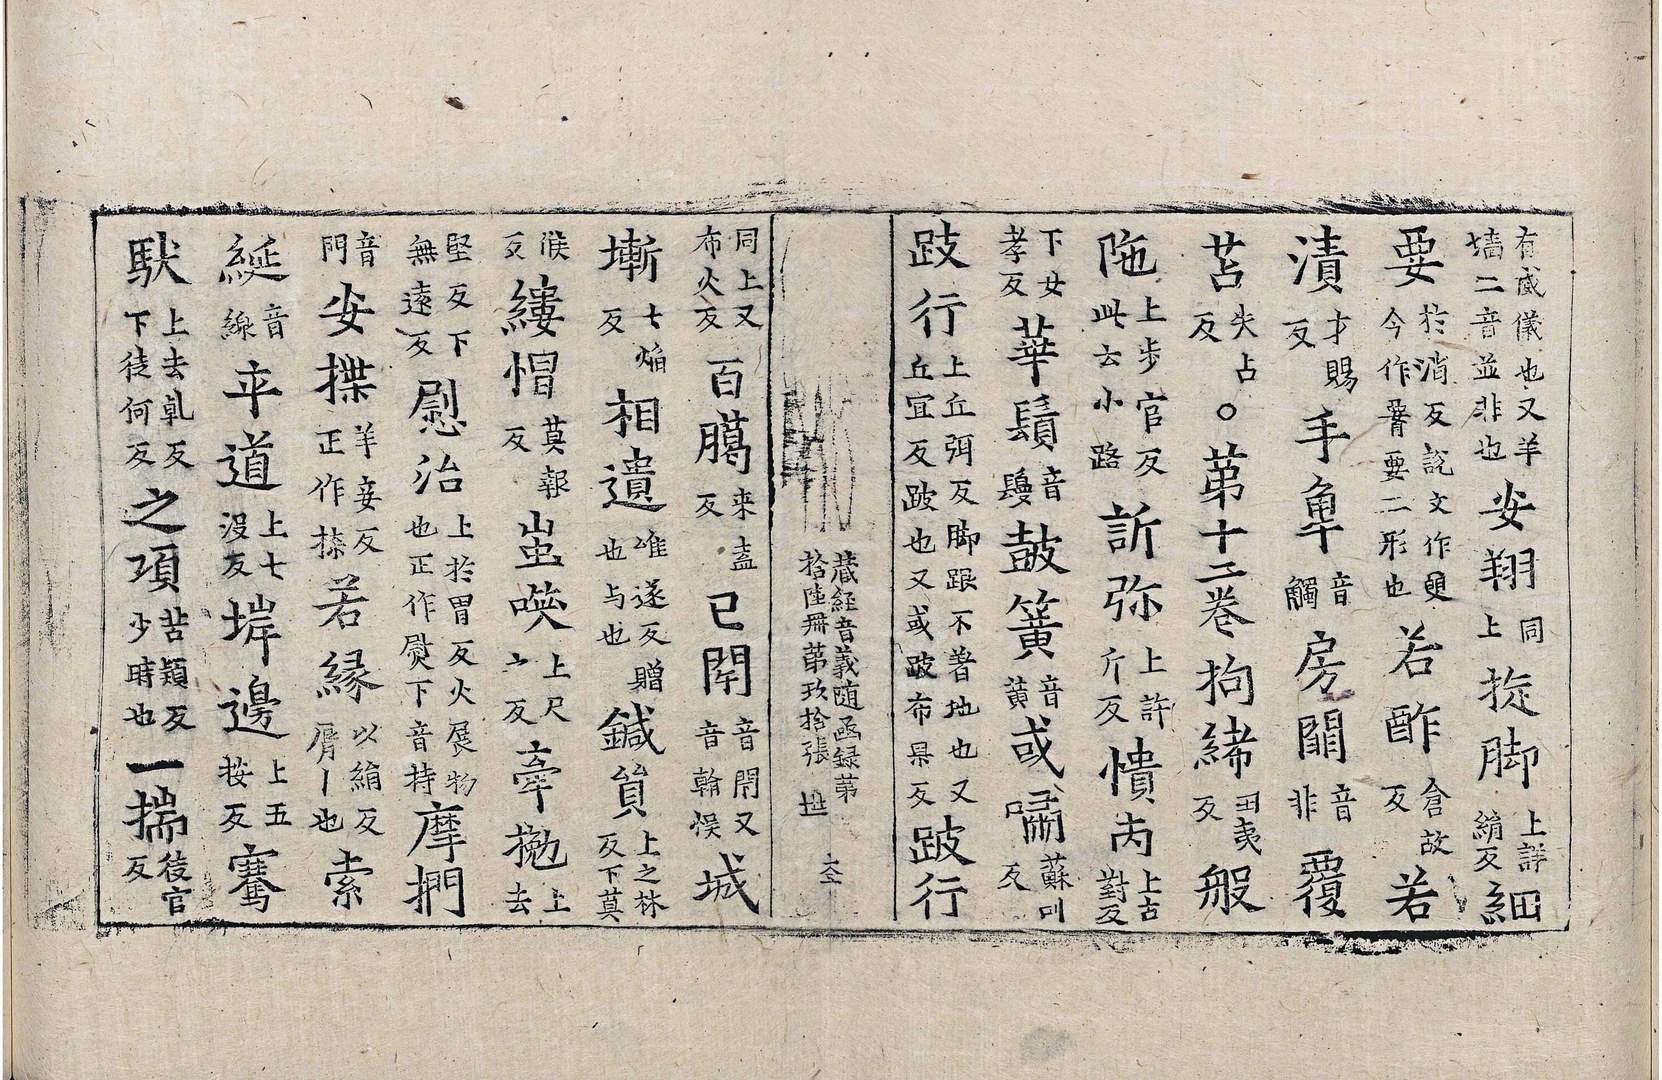 有威儀也又羊墻二音並非也安翔同上旋脚上詳絹反細
要於消反説文作𦥼今作䐔要二形也若酢倉故反若
漬才賜反手䍏音觸房闈音非覆
苫失占反○第十二卷拘絺丑夷反般
陁上步官反此云小路訢弥上許斤反憒丙上古對反
下女孝反華鬚音鬘鼓簧音黄或嘯蘇叫反
跂行上丘弭反脚跟不着地也又丘宜反跛也又或跛布果反跛行
藏経音義随函録第拾陸冊第玖拾張 世
同上又布火反百臈来盍反已閈音閈又音翰悮城
塹七焰反相遺唯遂反贈也与也鍼貿上之林反下莫
候反縷帽莫報反蚩𠸍上尺之反牽拋上去
堅反下無遠反慰治上於胃反火展物也正作熨下音持摩捫
音門安揲羊妾反正作擛若縁以絹反脣丨也索
綖音線平道上七没反㟁邊上五按反騫
馱上去乹反下徒何反之項苦頴反少時也一揣徒官反